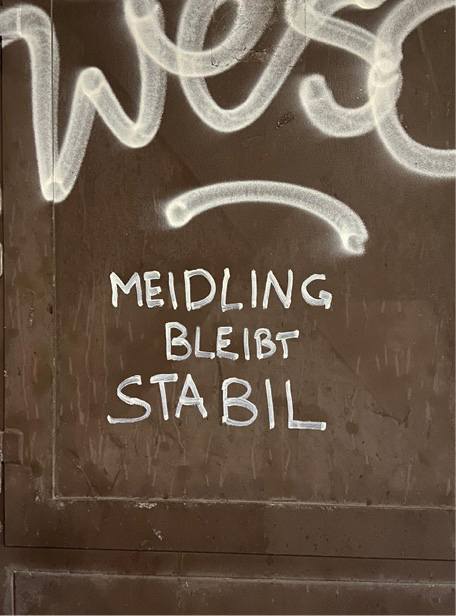 wesc
MEIDLING
BLEIBT
STABIL